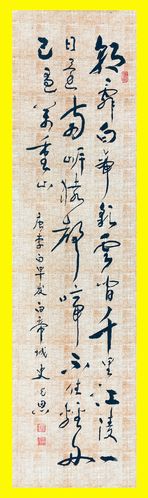 朝辭白帝彩雲間千里江陵一
日還兩岸猿聲啼不住輕舟
已過萬重山
李白早發白帝城 史